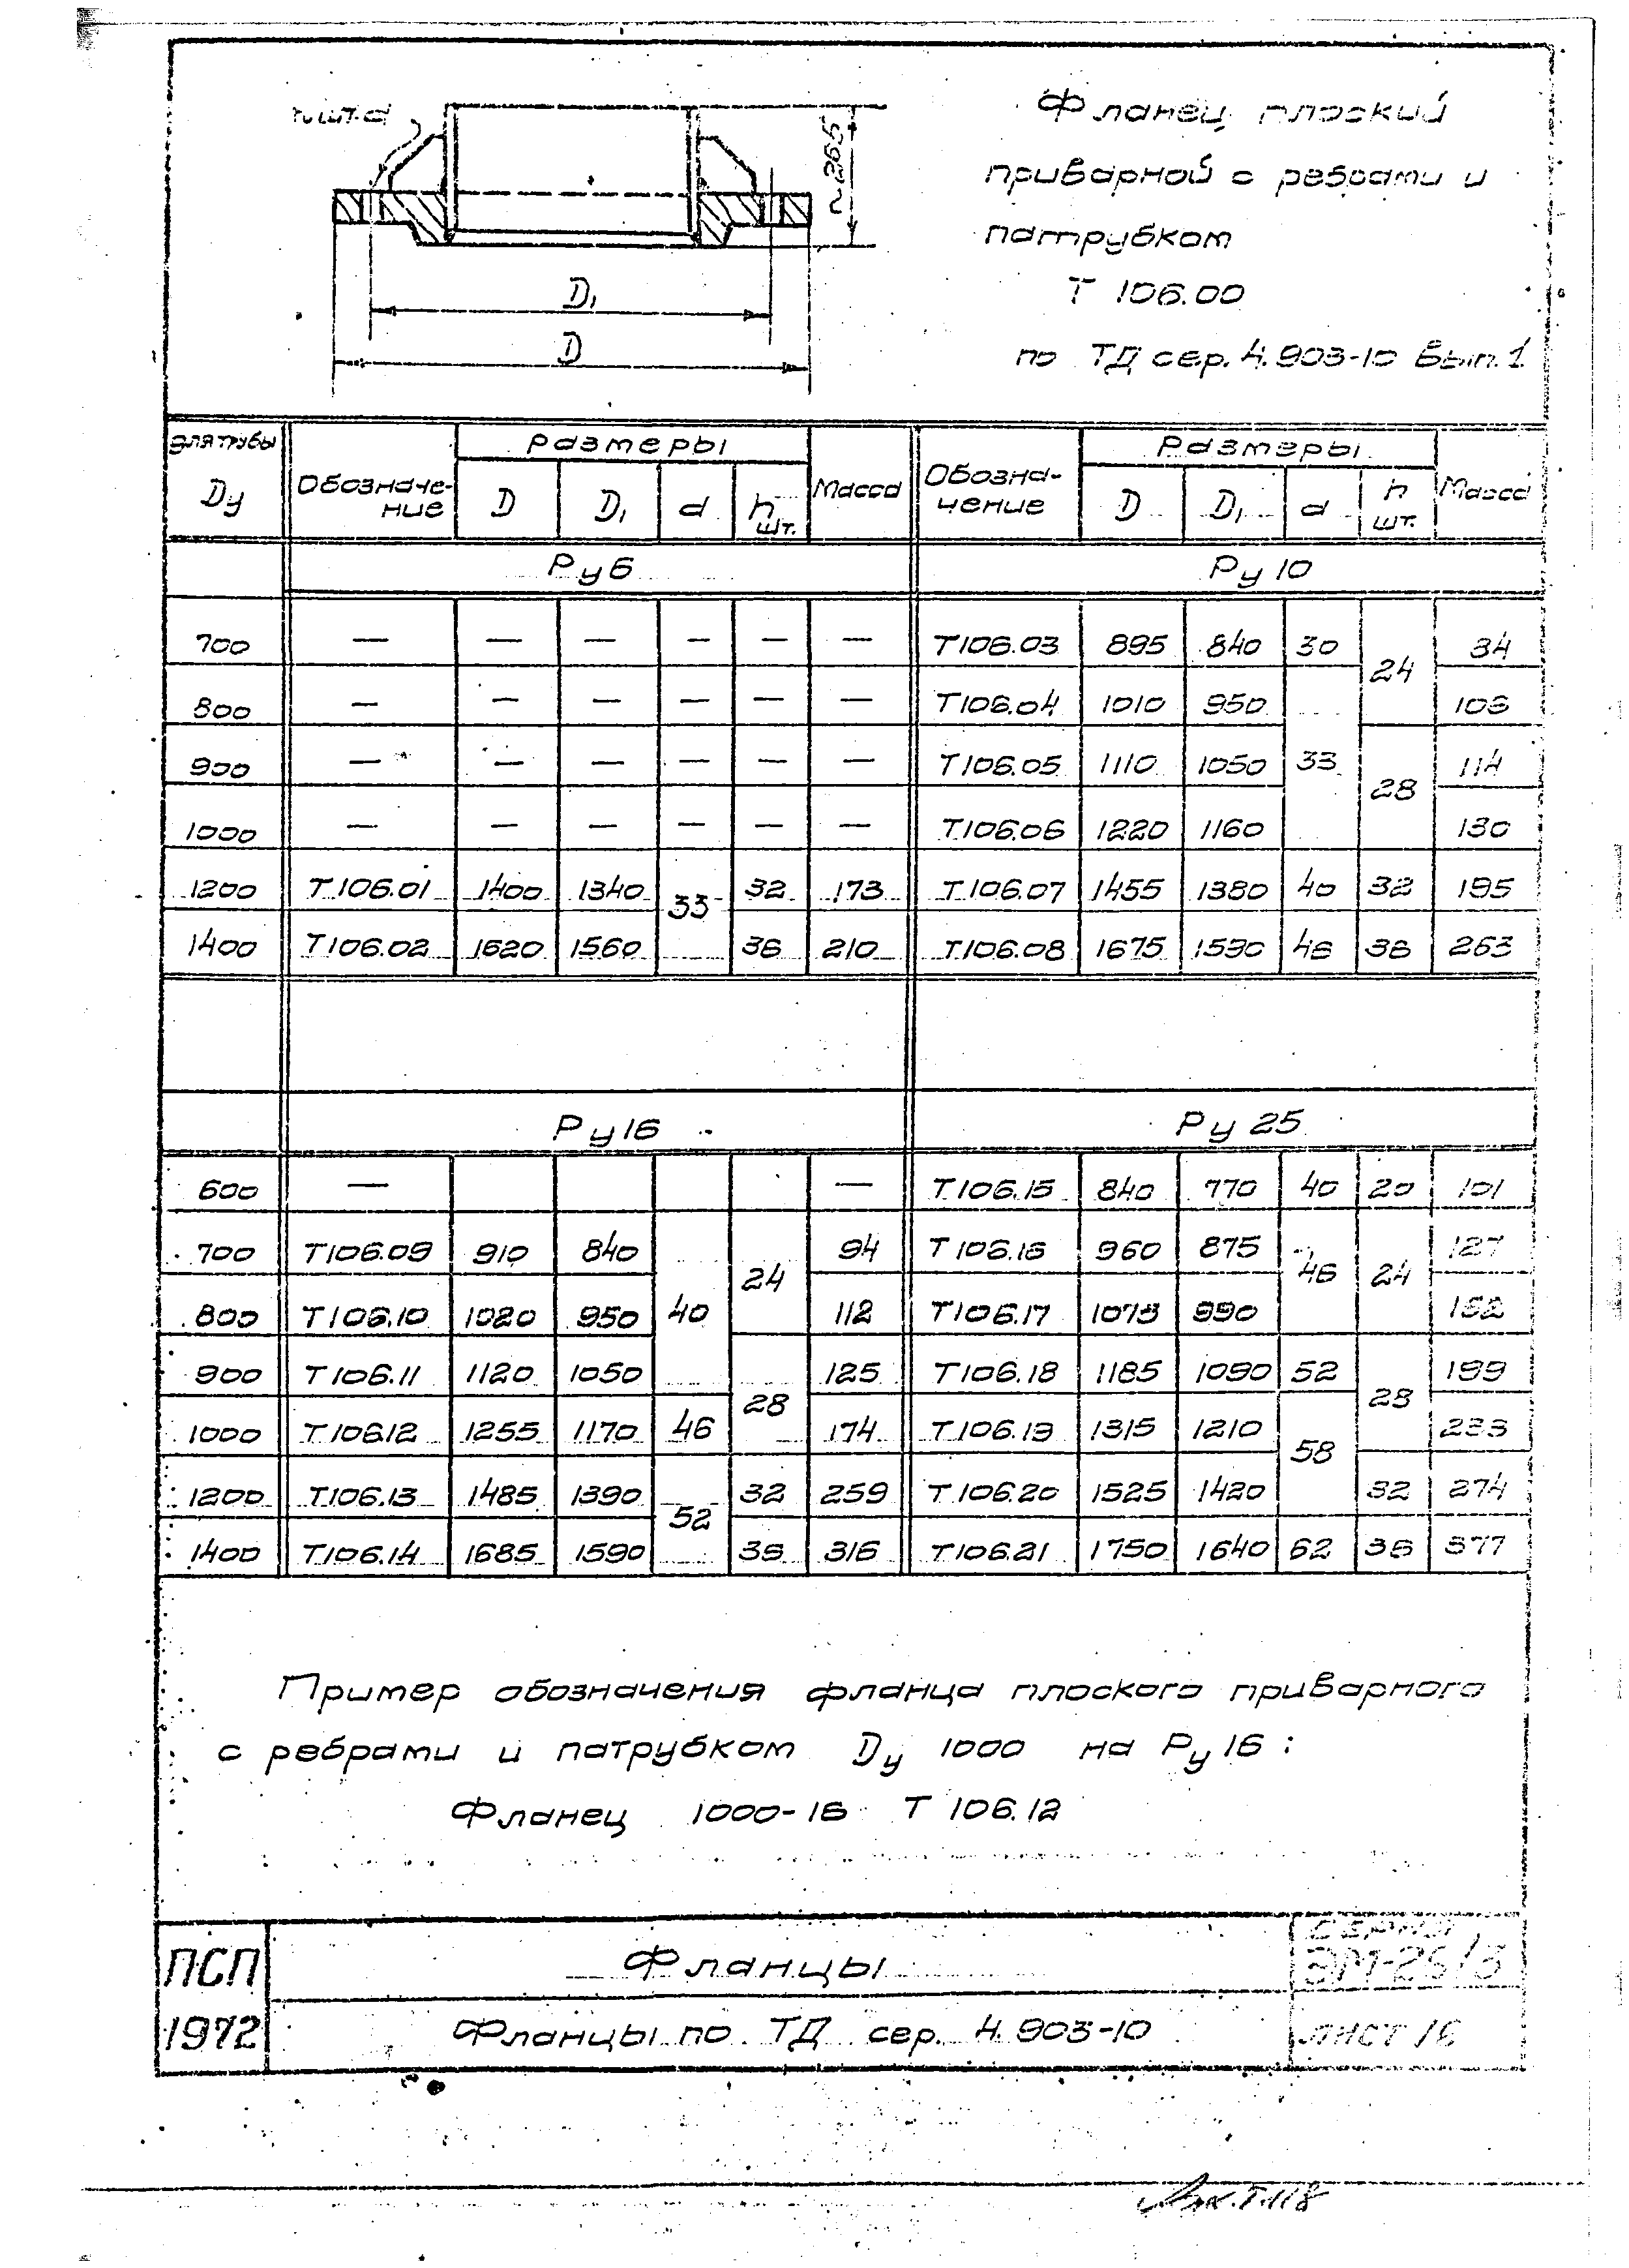 n шт. d
~265
D₁
D
Фланец плоский
приварной с ребрами и
патрубком
Т 106.00
по ТД сер. 4.903-10 Вып. 1
для трубы Dу | Обозначение | Размеры | Масса | Обозна-чение | Размеры | Масса
D | D₁ | d | n шт. | D | D₁ | d | n шт.
Ру6 | Ру 10
700 | — | — | — | — | — | — | Т106.03 | 895 | 840 | 30 | 24 |
800 | — | — | — | — | — | — | Т106.04 | 1010 | 950
900 | — | — | — | — | — | — | Т106.05 | 1110 | 1050 | 33 | 28 | 114
1000 | — | — | — | — | — | — | Т106.06 | 1220 | 1160 | 130
1200 | Т106.01 | 1400 | 1340 | 33 | 32 | 173 | Т106.07 | 1455 | 1380 | 40 | 32 | 195
1400 | Т106.02 | 1620 | 1560 | 36 | 210 | Т106.08 | 1675 | 1590 | 46 | 36 | 263
Ру16 | Ру 25
600 | — | — | Т106.15 | 840 | 770 | 40 | 20 | 101
700 | Т106.09 | 910 | 840 | 24 | 94 | Т106.16 | 960 | 875 | 46 | 24 | 127
800 | Т106.10 | 1020 | 950 | 40 | 112 | Т106.17 | 1075 | 990 | 152
900 | Т106.11 | 1120 | 1050 | 28 | 125 | Т106.18 | 1185 | 1090 | 52 | 28 | 199
1000 | Т106.12 | 1255 | 1170 | 46 | 174 | Т106.19 | 1315 | 1210 | 58
1200 | Т106.13 | 1485 | 1390 | 52 | 32 | 259 | Т106.20 | 1525 | 1420 | 32 | 274
1400 | Т106.14 | 1685 | 1590 | 36 | 316 | Т106.21 | 1750 | 1640 | 62 | 36 | 377
Пример обозначения фланца плоского приварного
с ребрами и патрубком Dу 1000 на Ру16:
Фланец 1000-16 Т 106.12
ПСП
1972
Фланцы
Фланцы по ТД сер. 4.903-10
СЕРИЯ
ЛИСТ 16